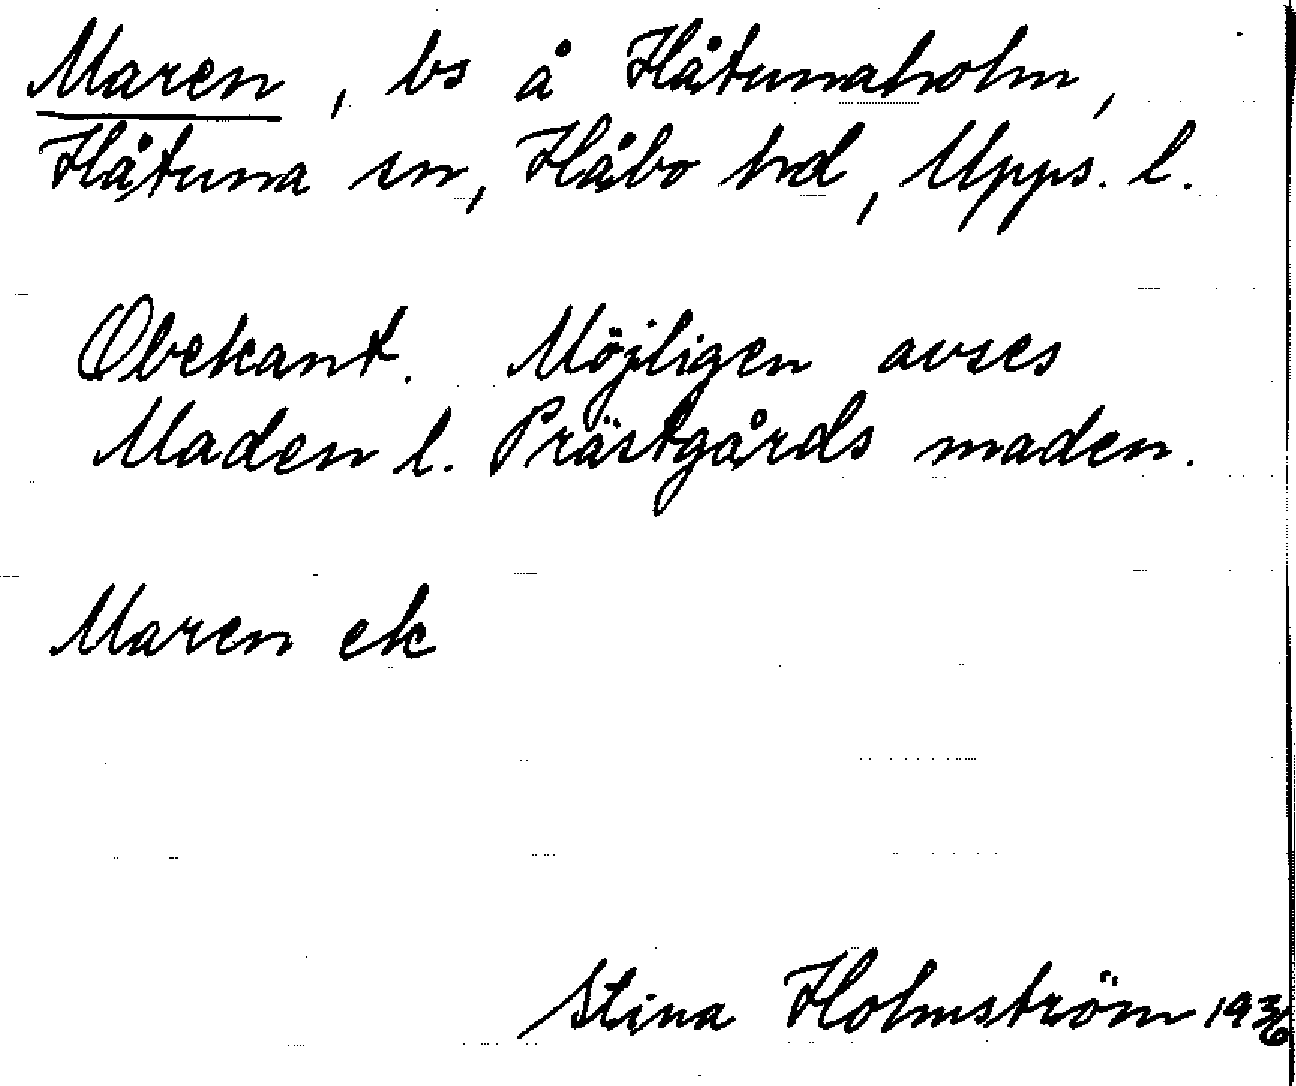 Maren, bs å Håtunaholm,
Håtuna sn, Håbo hd, Upps. l.
Obekant. Möjligen avses
Maden l. Prästgårds maden.
Maren ek
Stina Holmström 1936